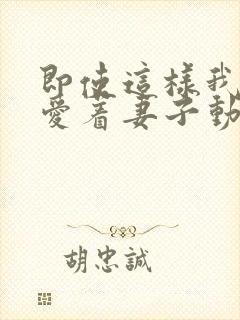 即使這樣我
愛着妻子動
胡忠誠